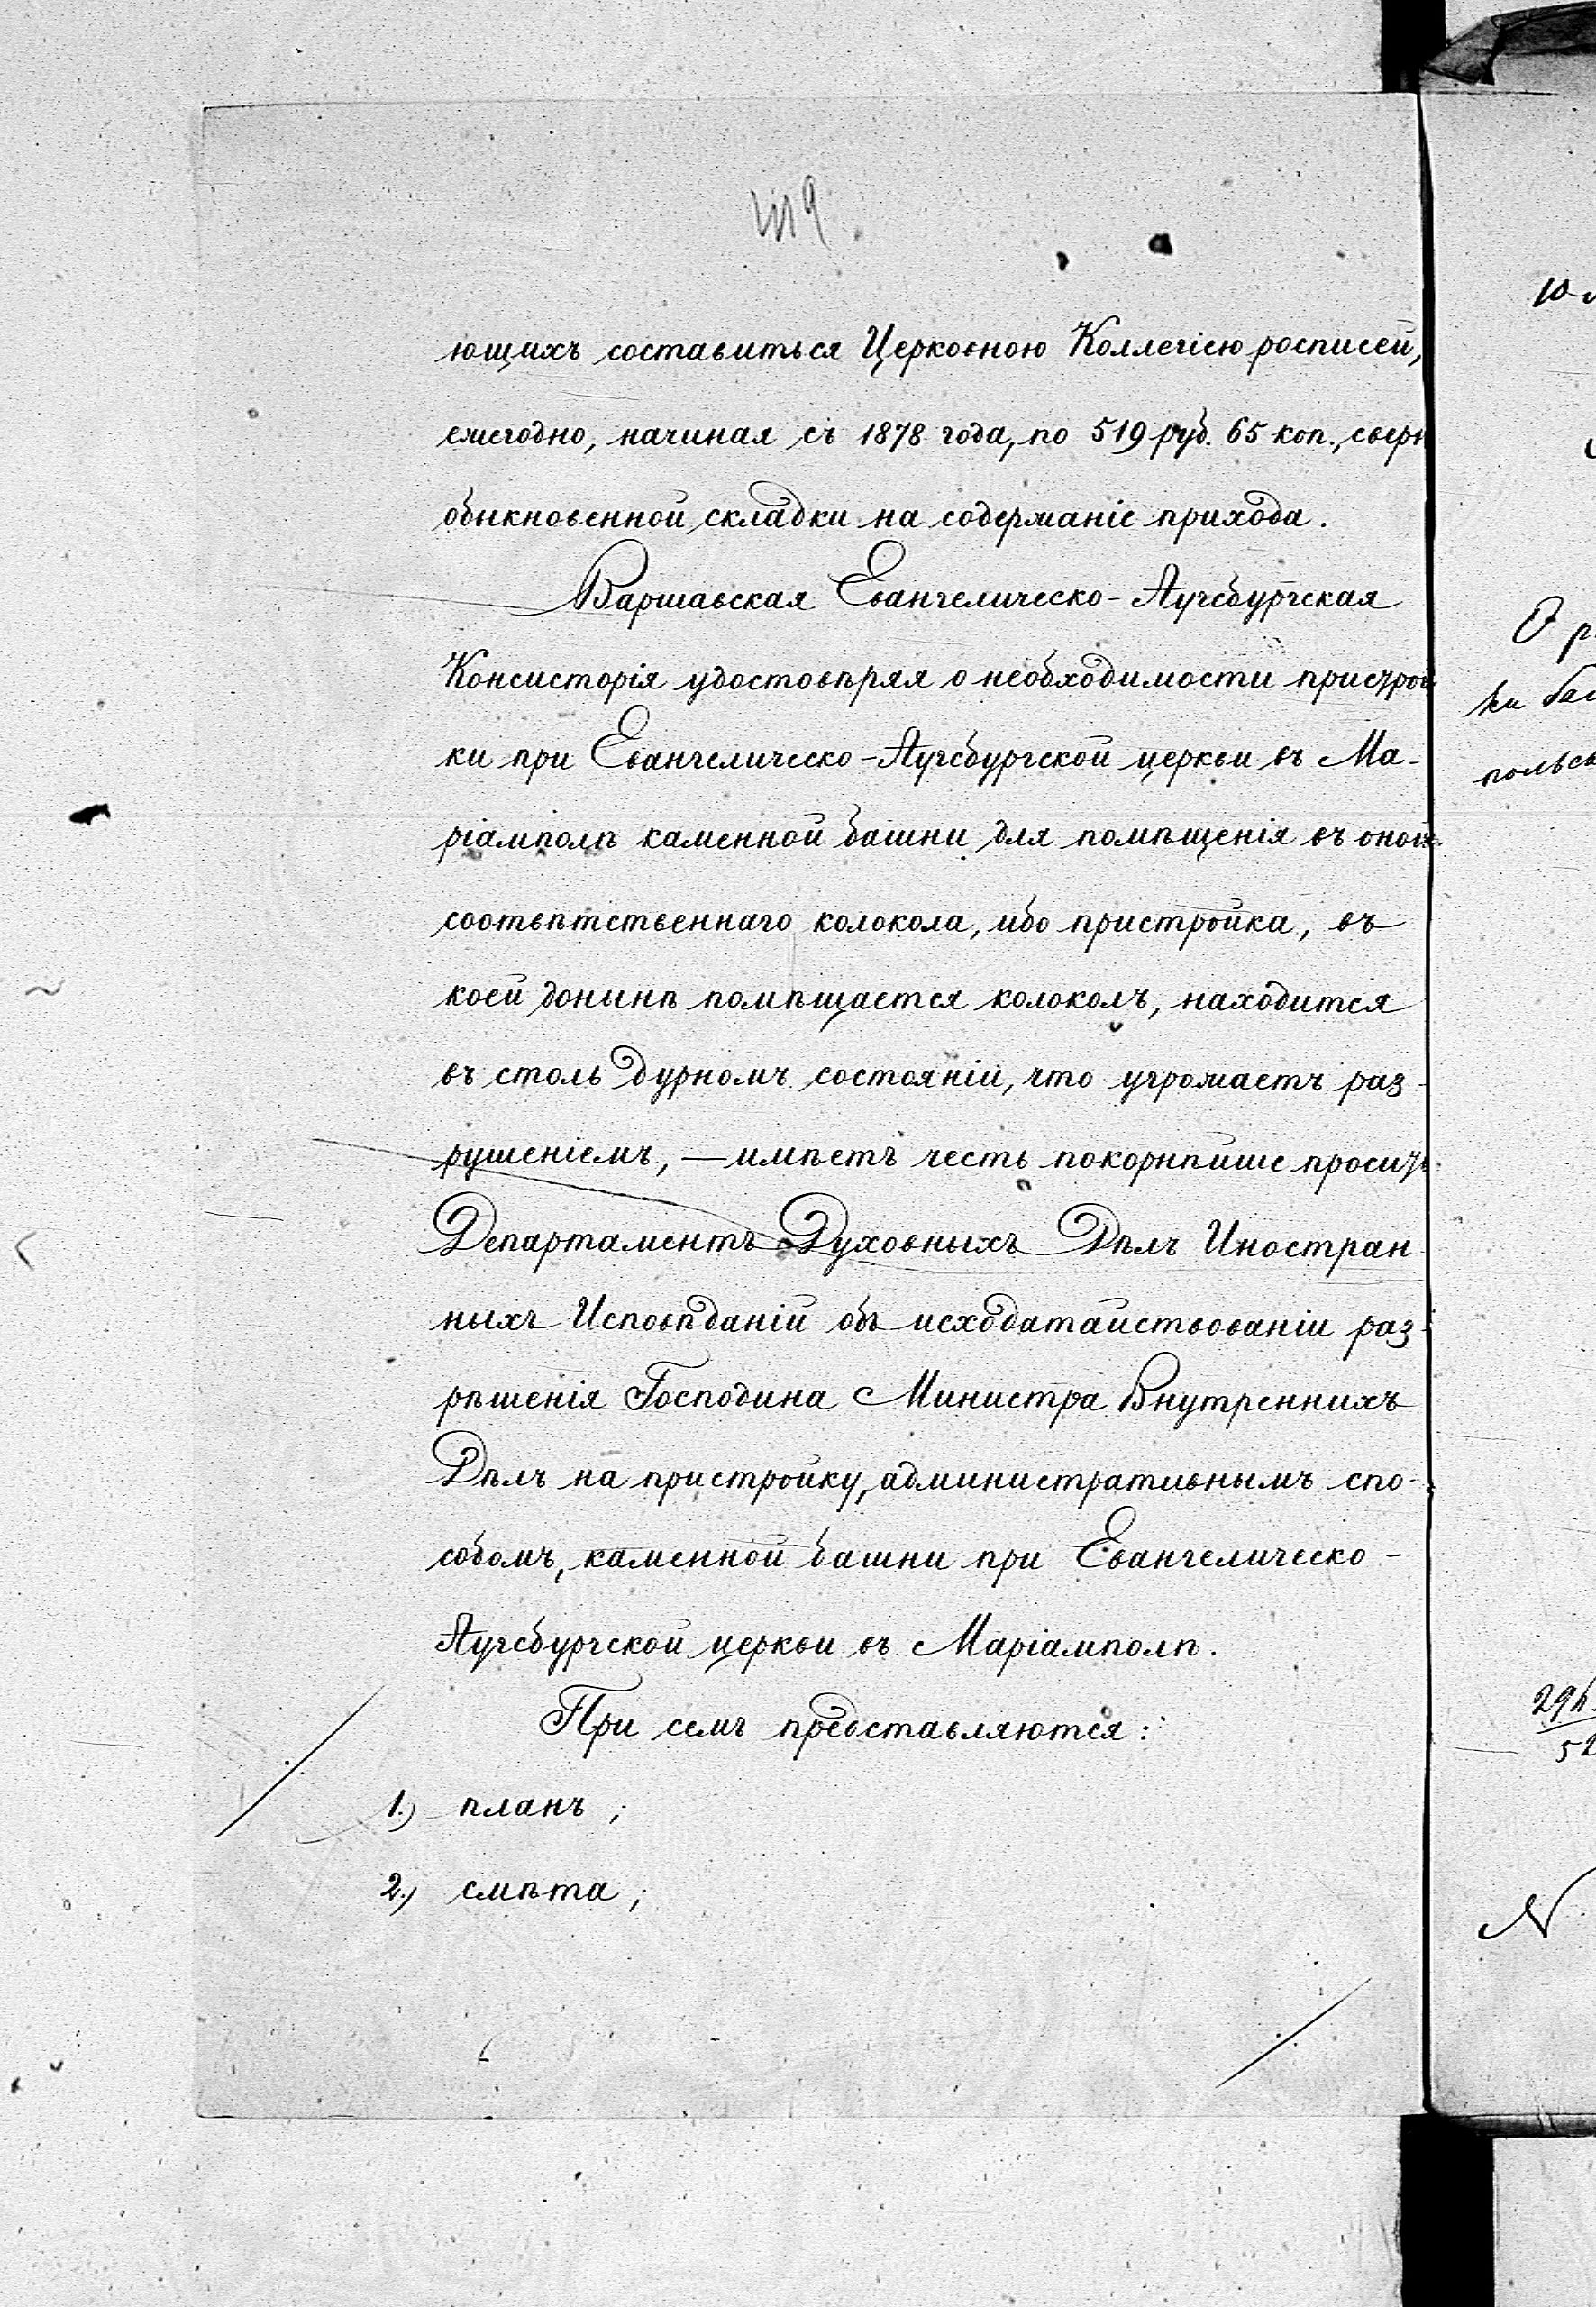 ющихъ составиться Церковною Коллегіею росписей,
ежегодно, начиная съ 1878 года, по 519 руб. 65 коп., сверх
обыкновенной складки на содержаніе прихода.
Варшавская Евангелическо-Аугсбургская
Консисторія удостовѣряя о необходимости пристрой
ки при Евангелическо-Аугсбургской церкви въ Ма-
ріамполѣ каменной башни для помѣщенія въ оной
соотвѣтственнаго колокола, ибо пристройка, въ
коей донынѣ помѣщается колоколъ, находится
въ столь дурномъ состояніи, что угрожаетъ раз-
рушеніемъ, — имѣетъ честь покорнѣйше просить
Департаментъ Духовныхъ Дѣлъ Иностран
ныхъ Исповѣданій объ исходатайствованіи раз-
рѣшенія Господина Министра Внутреннихъ
Дѣлъ на пристройку, административнымъ спо-
собомъ, каменной башни при Евангелическо-
Аугсбургской церкви въ Маріамполѣ.
При семъ представляются:
1.) планъ;
2.) смѣта;